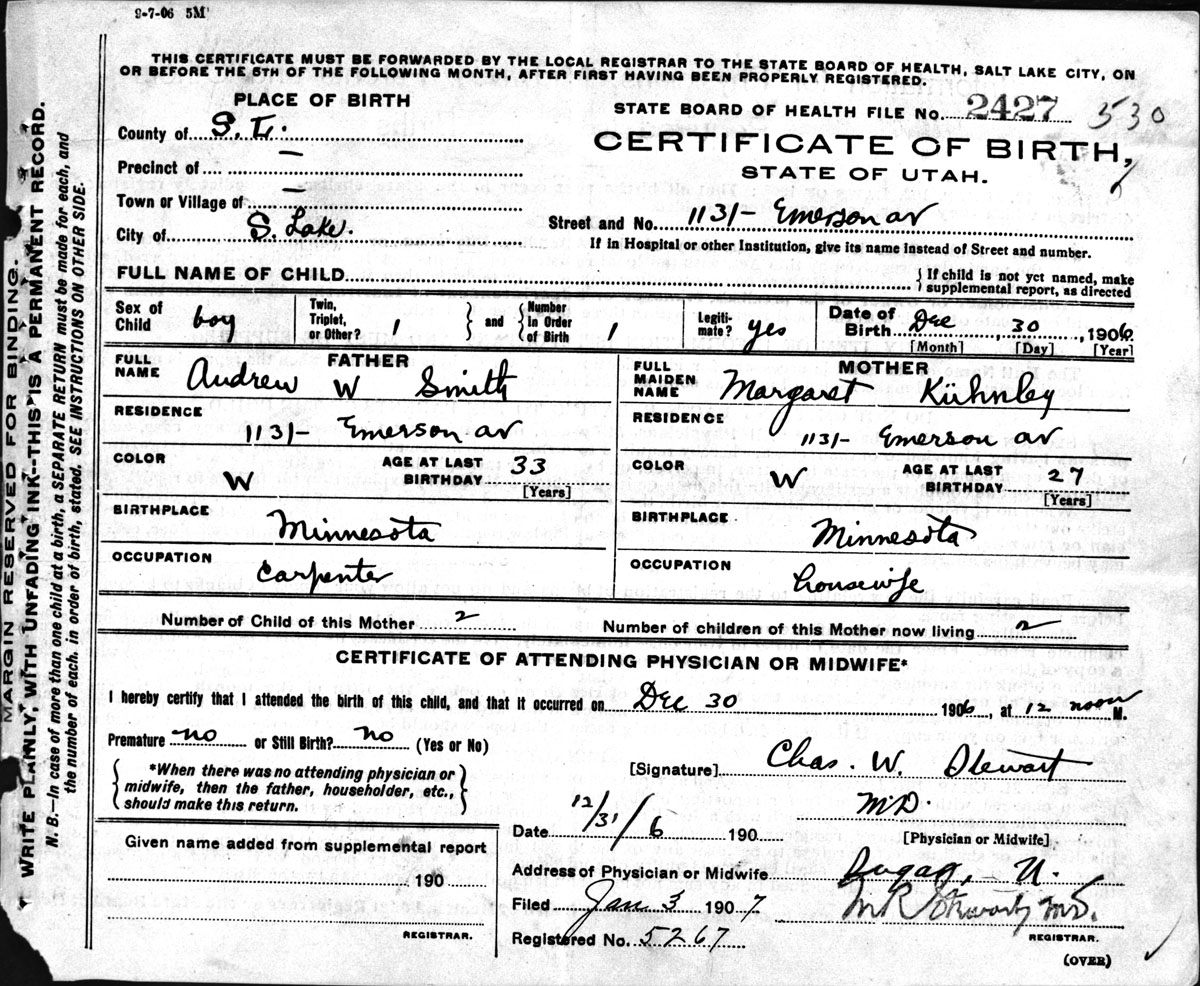 9-7-06 5M
THIS CERTIFICATE MUST BE FORWARDED BY THE LOCAL REGISTRAR TO THE STATE BOARD OF HEALTH, SALT LAKE CITY, ON
OR BEFORE THE 5TH OF THE FOLLOWING MONTH, AFTER FIRST HAVING BEEN PROPERLY REGISTERED.
PLACE OF BIRTH
STATE BOARD OF HEALTH FILE No. 2427 530
County of S. L.
CERTIFICATE OF BIRTH,
STATE OF UTAH.
Precinct of —
Town or Village of —
City of S. Lake.
Street and No. 1131- Emerson av
If in Hospital or other Institution, give its name instead of Street and number.
FULL NAME OF CHILD
{ If child is not yet named, make
supplemental report, as directed
Sex of Child boy
Twin, Triplet, or Other? 1
and
Number in Order of Birth 1
Legitimate? yes
Date of Birth Dec, 30, 1906
[Month] [Day] [Year]
FATHER
FULL NAME Andrew W Smith
MOTHER
FULL MAIDEN NAME Margaret Kühnley
RESIDENCE
1131- Emerson av
RESIDENCE
1131- Emerson av
COLOR W
AGE AT LAST BIRTHDAY 33
[Years]
COLOR W
AGE AT LAST BIRTHDAY 27
[Years]
BIRTHPLACE
Minnesota
BIRTHPLACE
Minnesota
OCCUPATION
Carpenter
OCCUPATION
housewife
Number of Child of this Mother 2
Number of children of this Mother now living 2
CERTIFICATE OF ATTENDING PHYSICIAN OR MIDWIFE*
I hereby certify that I attended the birth of this child, and that it occurred on Dec 30 1906, at 12 noon M.
Premature no or Still Birth? no (Yes or No)
{ *When there was no attending physician or
midwife, then the father, householder, etc.,
should make this return. }
[Signature] Chas. W. Stewart
MD.
[Physician or Midwife]
Date 12/31/6 190
Given name added from supplemental report
190
REGISTRAR.
Address of Physician or Midwife
Filed Jan 3 1907
Registered No. 5267
REGISTRAR.
(OVER)
MARGIN RESERVED FOR BINDING.
WRITE PLAINLY, WITH UNFADING INK--THIS IS A PERMANENT RECORD.
N. B.—In case of more than one child at a birth, a SEPARATE RETURN must be made for each, and
the number of each, in order of birth, stated. SEE INSTRUCTIONS ON OTHER SIDE.